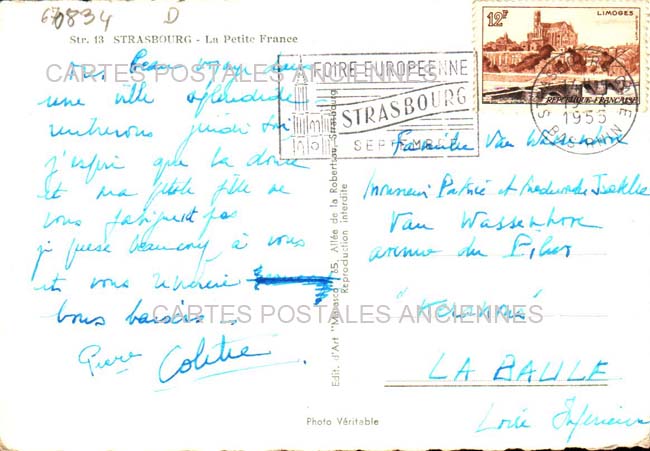 67 0834 D
Str. 13 STRASBOURG - La Petite France
beau voyage dans
une ville splendide
rentrerons jeudi soir
j'espère que la
et ma petite fille ne
vous fatiguent pas
je pense beaucoup à vous
et vous remercie
bons baisers
Pierre Colette
Edit. d'Art 65, Allée de la Robertsau, Strasbourg
Reproduction interdite
Photo Véritable
FOIRE EUROPÉENNE
STRASBOURG
SEPTEMBRE
12F LIMOGES
REPUBLIQUE FRANÇAISE
STRASBOURG
1955
BAS RHIN
Famille Van Wassenhove
Monsieur Patrice et Mademoiselle Isabelle
Van Wassenhove
avenue du
LA BAULE
Loire Inférieure
CARTES POSTALES ANCIENNES
CARTES POSTALES ANCIENNES